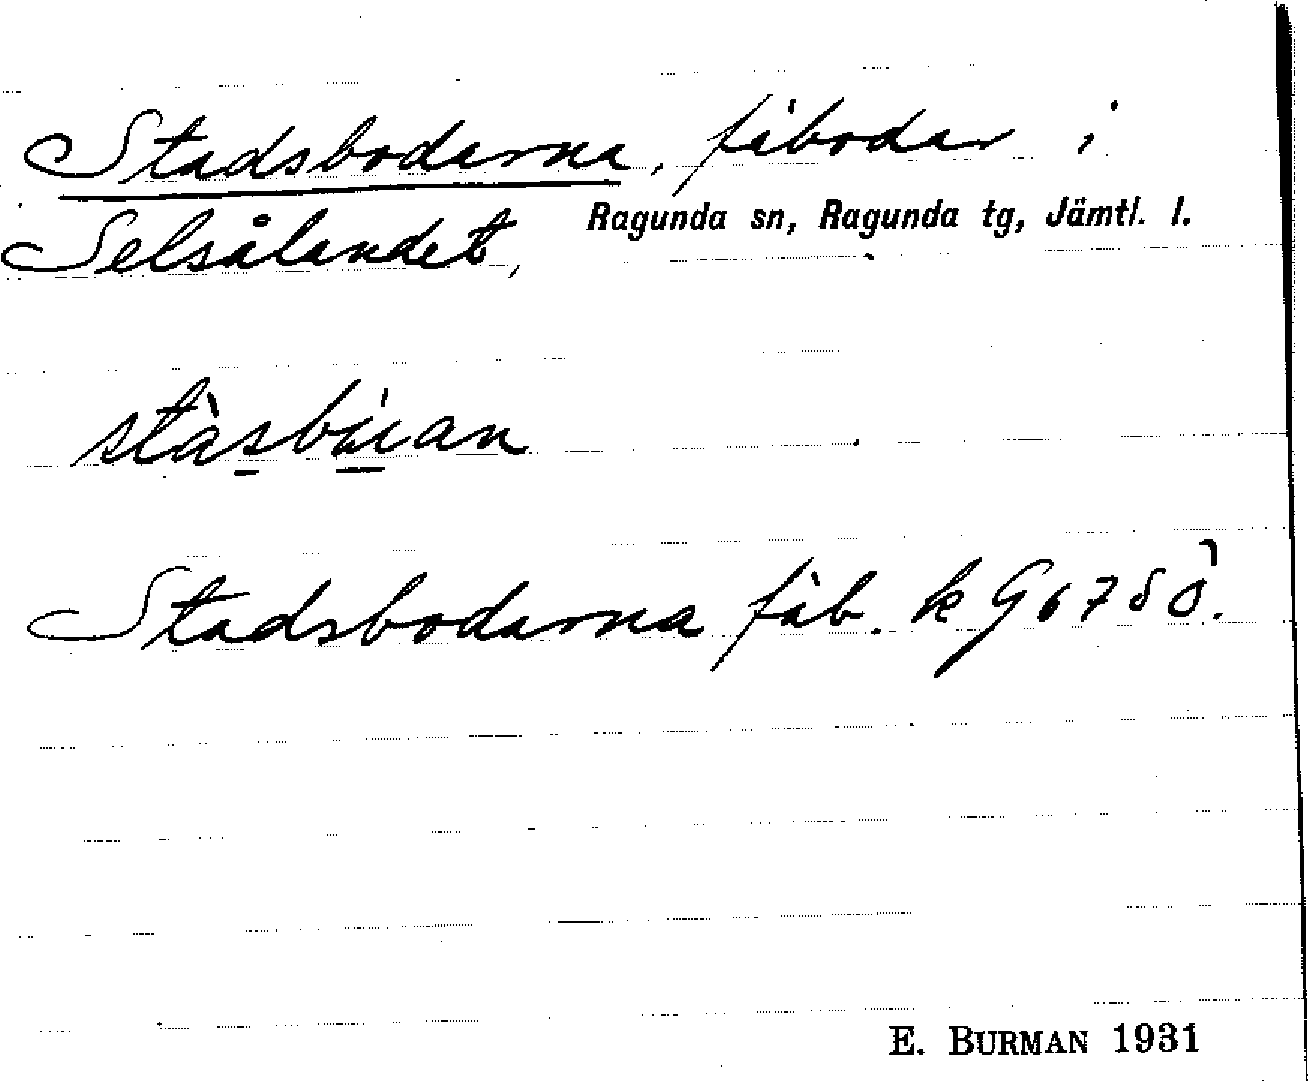 Stadsbodarna, fäbodar i
Selsålandet, Ragunda sn, Ragunda tg, Jämtl. l.
Stadsbodarna fäb. k G 67 80.
E. BURMAN 1931